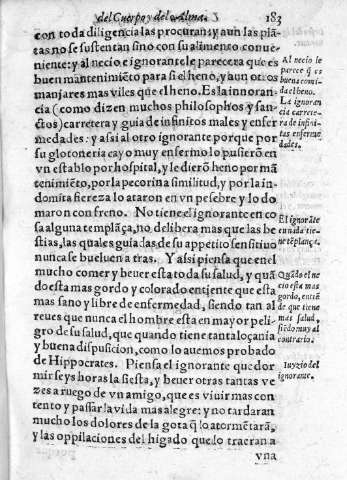 del Cuerpo y del Alma. 183
con toda diligencia las procurarà: y aun las plã-
tas no se sustentan sino con su alimento conue-
niente: y al necio e ignorante le parecera que es
buen mantenimiẽto para si el heno, y aun otros
manjares mas viles que el heno. Es la innoran-
cia (como dizen muchos philosophos y san-
ctos) carretera y guia de infinitos males y enfer
medades: y assi al otro ignorante porque por
su glotoneria cayo muy enfermo lo pusierõ en
vn establo por hospital, y le dierõ heno por mã
tenimiẽto, por la pecorina similitud, y por la in-
domita fiereza lo ataron en vn pesebre y lo do
maron con freno. No tiene el ignorante en co
sa alguna templãça, no delibera mas que las be
stias, las quales guiadas de su appetito sensitiuo
nunca se bueluen a tras. Y assi piensa que en el
mucho comer y beuer esta toda su salud, y quã
do esta mas gordo y colorado entiẽde que esta
mas sano y libre de enfermedad, siendo tan al
reues que nunca el hombre esta en mayor peli-
gro de su salud, que quando tiene tanta loçania
y buena dispusicion, como lo auemos probado
de Hippocrates. Piensa el ignorante que dor
mir seys horas la siesta, y beuer otras tantas ve
zes a ruego de vn amigo, que es viuir mas con
tento y passar la vida mas alegre: y no tardaran
mucho los dolores de la gota q̃ lo atormẽtarã,
y las oppilaciones del higado que lo traeran a
vna
Al necio le
parece q̃ es
buena comi-
da el heno.
La ignoran
cia carrete-
ra de infini-
tas enferme
dades.
El ignorãte
en nada tie-
ne tẽplança.
Quãdo el ne
cio esta mas
gordo, entiẽ
de que tiene
mas salud,
siẽdo muy al
contrario.
Iuyzio del
ignorante.